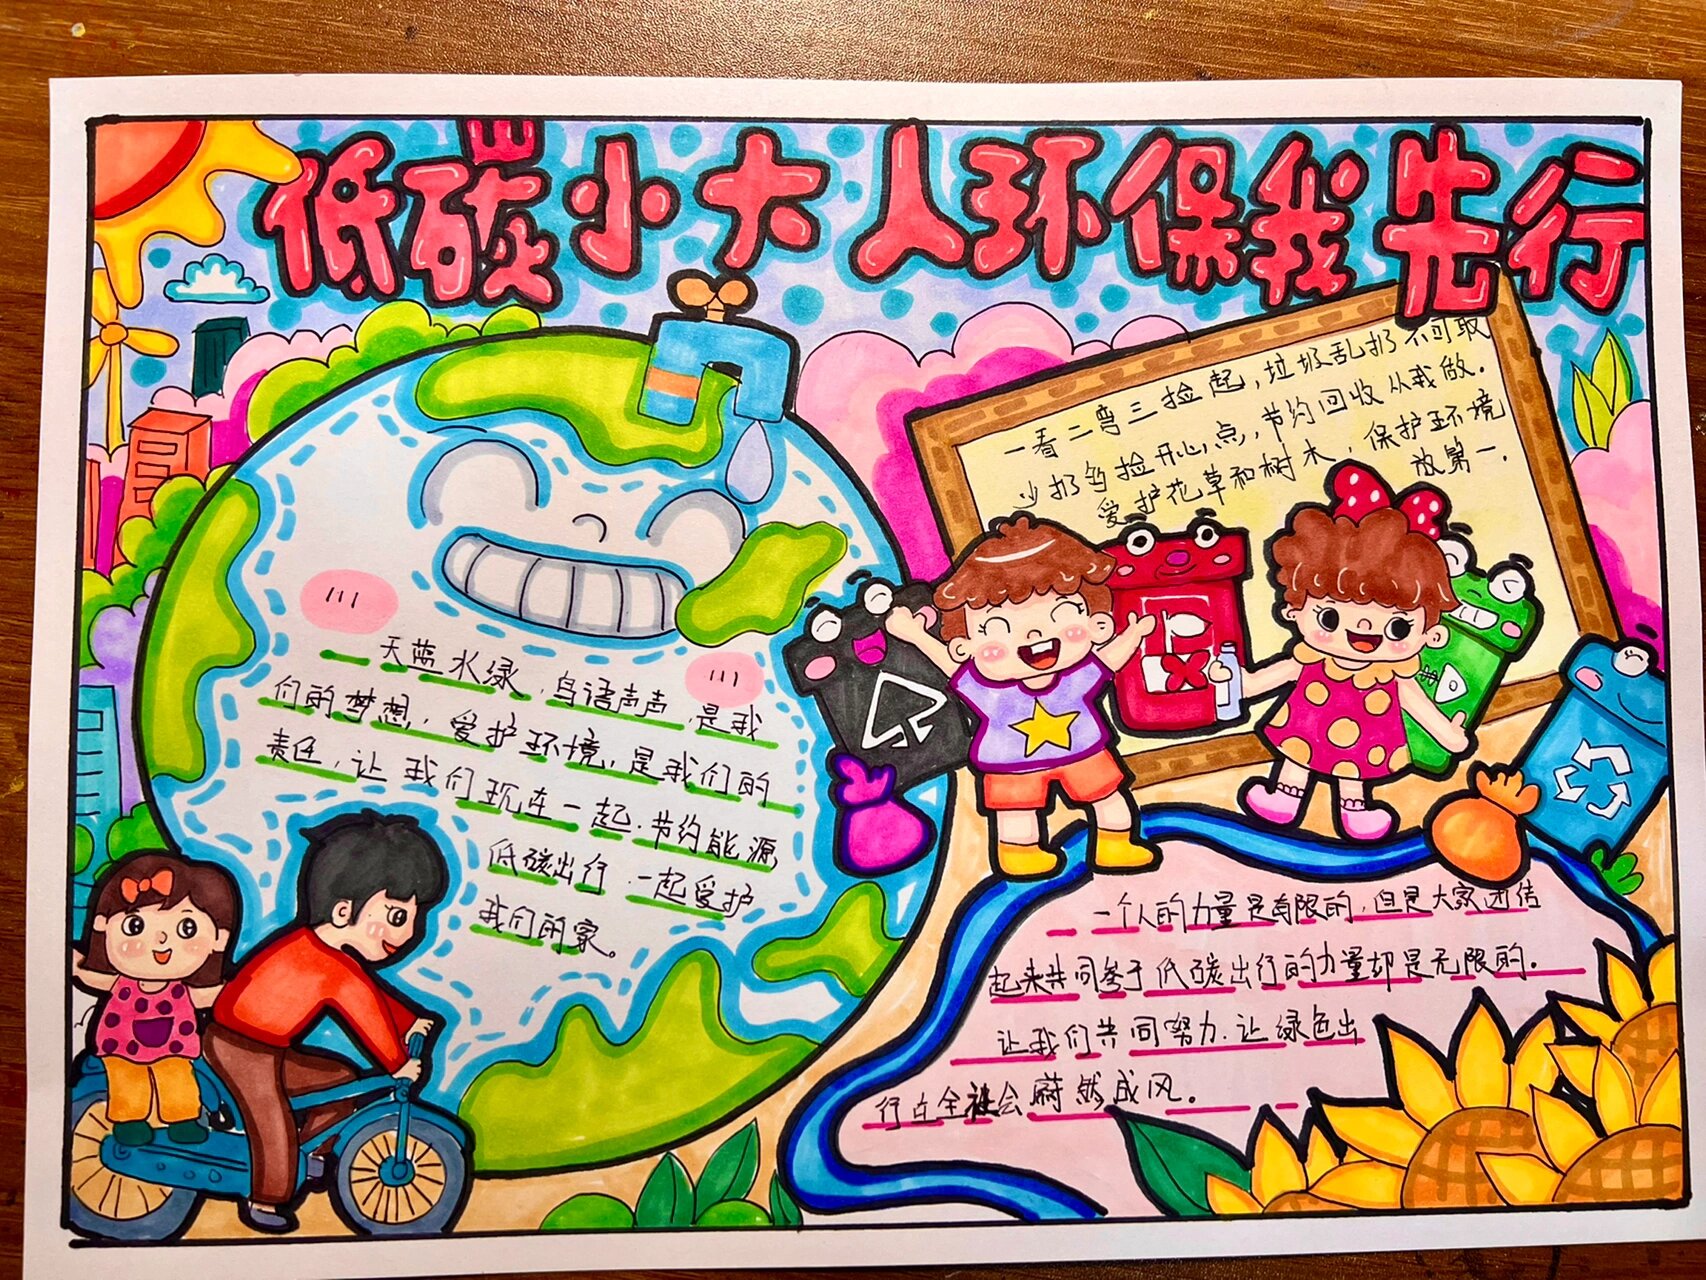 低碳小大人环保我先行
一看二弯三捡起，垃圾乱扔不可取
少扔多捡开心点，节约回收从我做.
爱护花草和树木，保护环境
放第一.
天蓝水绿，鸟语声声，是我
们的梦想，爱护环境，是我们的
责任，让我们现在一起.节约能源
低碳出行.一起爱护
我们的家。
一个人的力量是有限的，但是大家团结
起来共同参于低碳出行的力量却是无限的.
让我们共同努力.让绿色出
行在全社会蔚然成风。